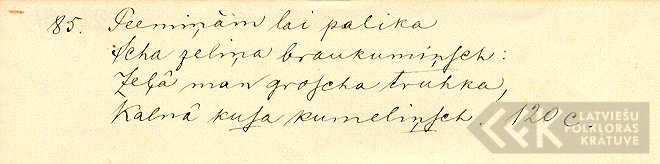 85. Peemiņâm lai palika
Scha zeliņa braukumiņsch:
Zeļâ man groscha truhka,
Kalnâ kusa kumeliņsch. 120 c.
LATVIEŠU
FOLKLORAS
KRĀTUVE